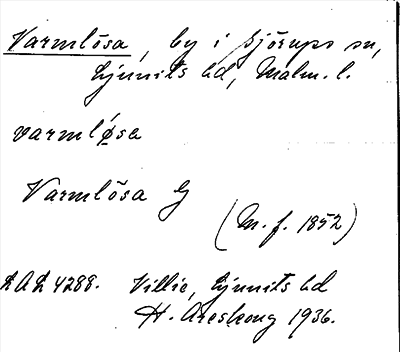 Varmlösa, by i Sjörups sn,
Ljunits hd, Malm. l.
varmløsa
Varmlösa G
(M. f. 1852)
LAL 4288. Villie, Ljunits hd
H. Areskoug 1936.